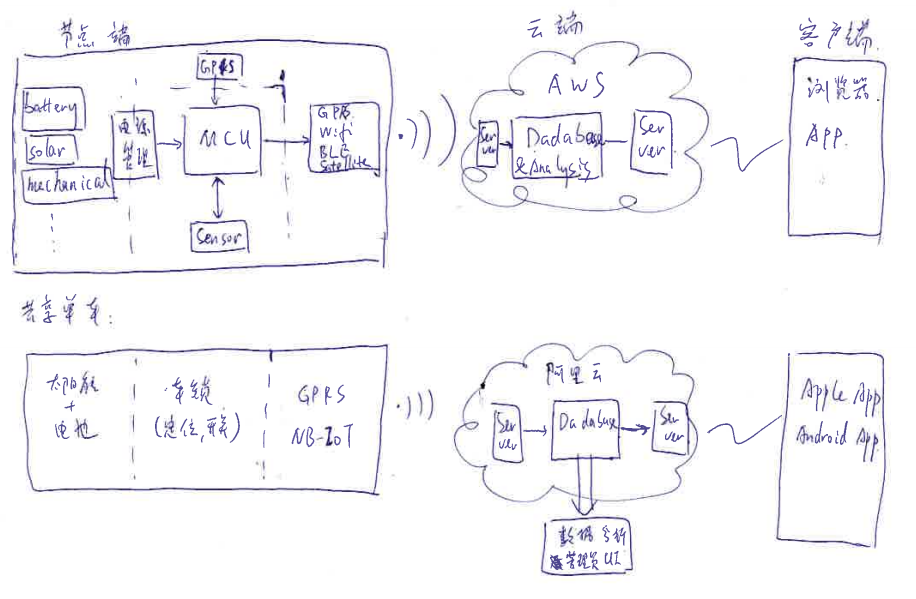 节点端
云端
客户端
GPRS
battery
solar
mechanical
电源
管理
MCU
GPRS
Wifi
BLE
Satellite
Sensor
AWS
Ser
ver
Dadabase
&Analysis
Ser
ver
浏览器
App.
共享单车:
太阳能
+
电池
车锁
(定位,开关)
GPRS
NB-IoT
阿里云
Ser
ver
Dadabase
Ser
ver
数据分析
管理员UI
Apple App
Android App